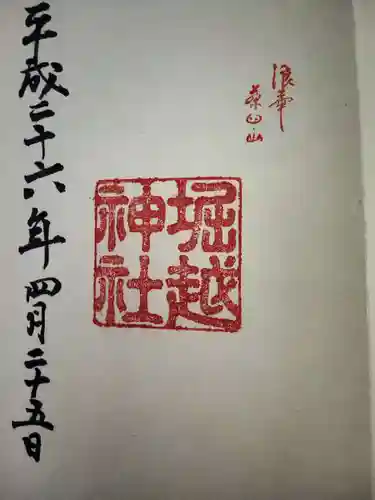 浪華
茶臼山
堀越
神社
平成二十六年四月二十五日